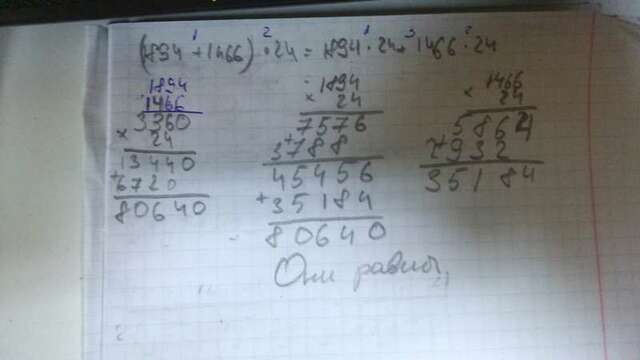 (1894 + 1466) · 24 = 1894 · 24 + 1466 · 24
1 2 1 3 2
1894
1466
3360
× 24
13440
+ 6720
80640
1894
× 24
7576
+ 3788
45456
+ 35184
80640
1466
× 24
5864
+ 2932
35184
Они равны,